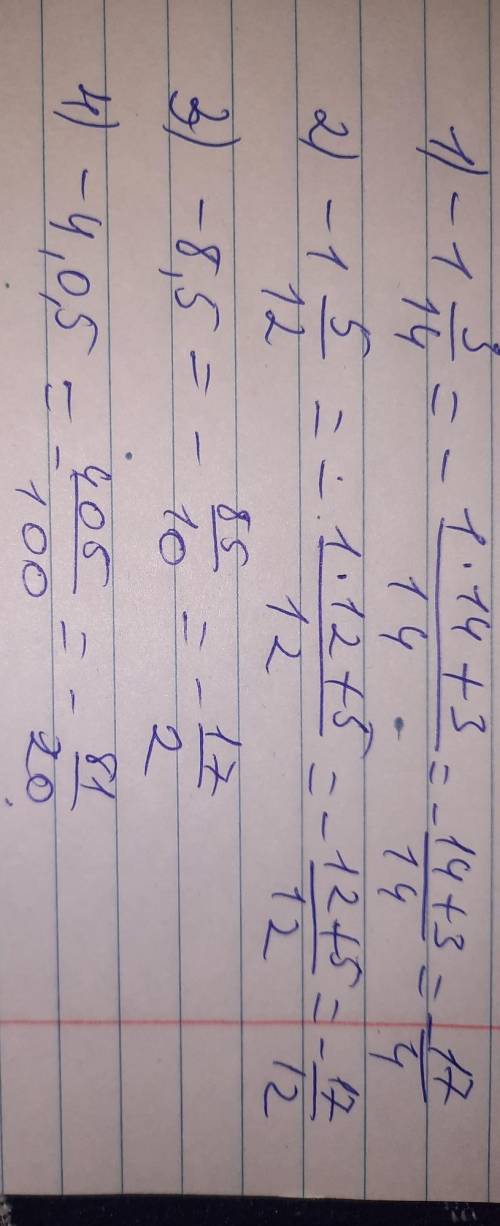 1) -1 3/14 = - 1·14+3/14 = - 14+3/14 = - 17/4
2) -1 5/12 = - 1·12+5/12 = - 12+5/12 = - 17/12
3) -8,5 = - 85/10 = - 17/2
4) -4,0,5 = - 405/100 = - 81/20